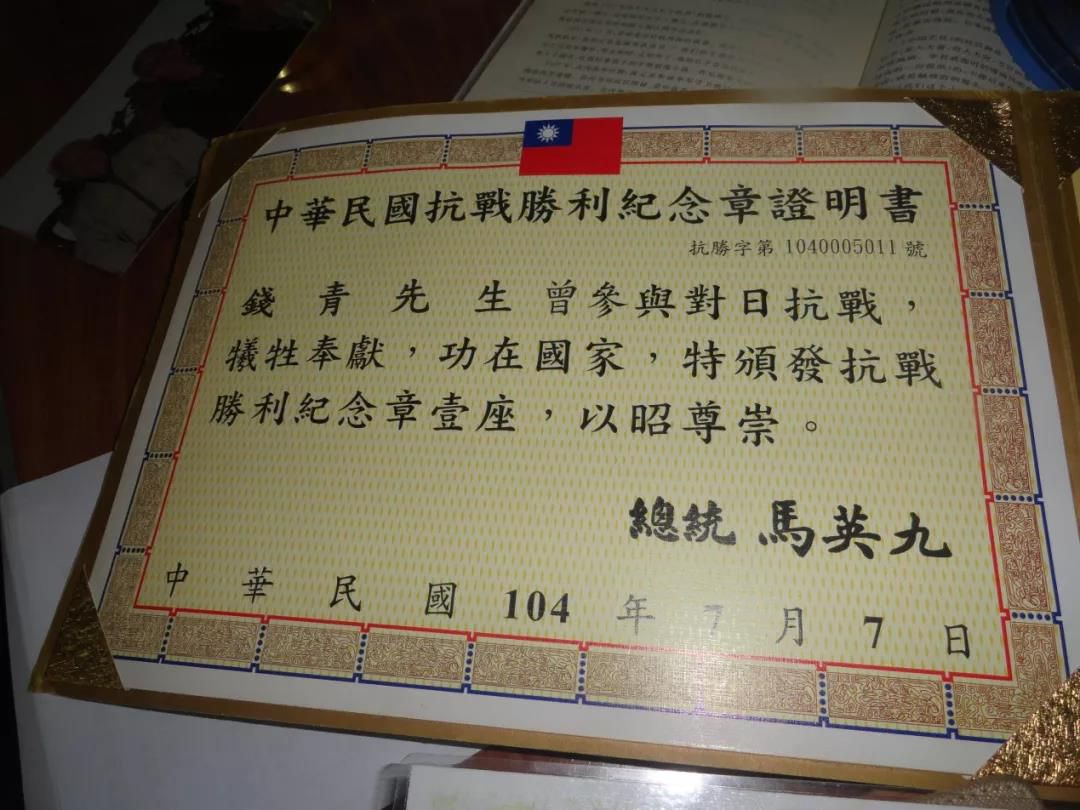 中華民國抗戰勝利紀念章證明書
抗勝字第 1040005011 號
錢青先生曾參與對日抗戰，
犧牲奉獻，功在國家，特頒發抗戰
勝利紀念章壹座，以昭尊崇。
總統 馬英九
中華民國 104 年 7 月 7 日